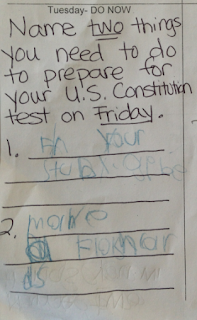 Tuesday- DO NOW
Name two things
you need to do
to prepare for
your U.S. Constitution
test on Friday.
1. Fn your
Study Gebe
2. mare
a Floknar
ds